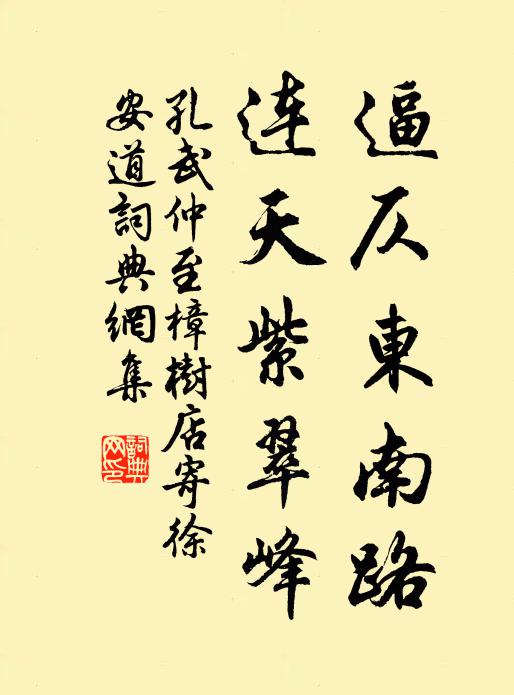 逼仄東南路
連天紫翠峰
孔武仲至樟樹店寄徐
安道詞典網集
詞典網印